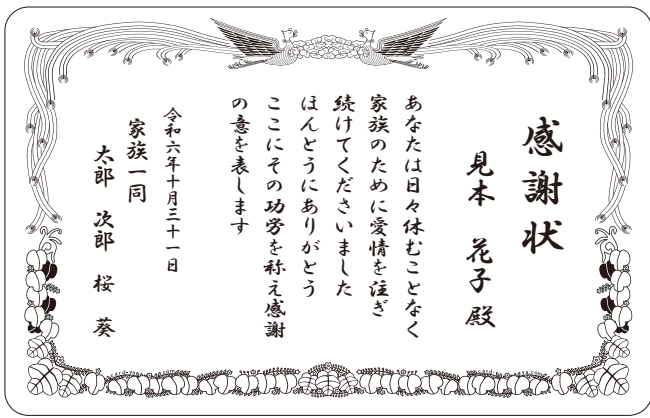 感謝状
見本 花子 殿
あなたは日々休むことなく
家族のために愛情を注ぎ
続けてくださいました
ほんとうにありがとう
ここにその功労を称え感謝
の意を表します
令和六年十月三十一日
家族一同
太郎 次郎 桜 葵